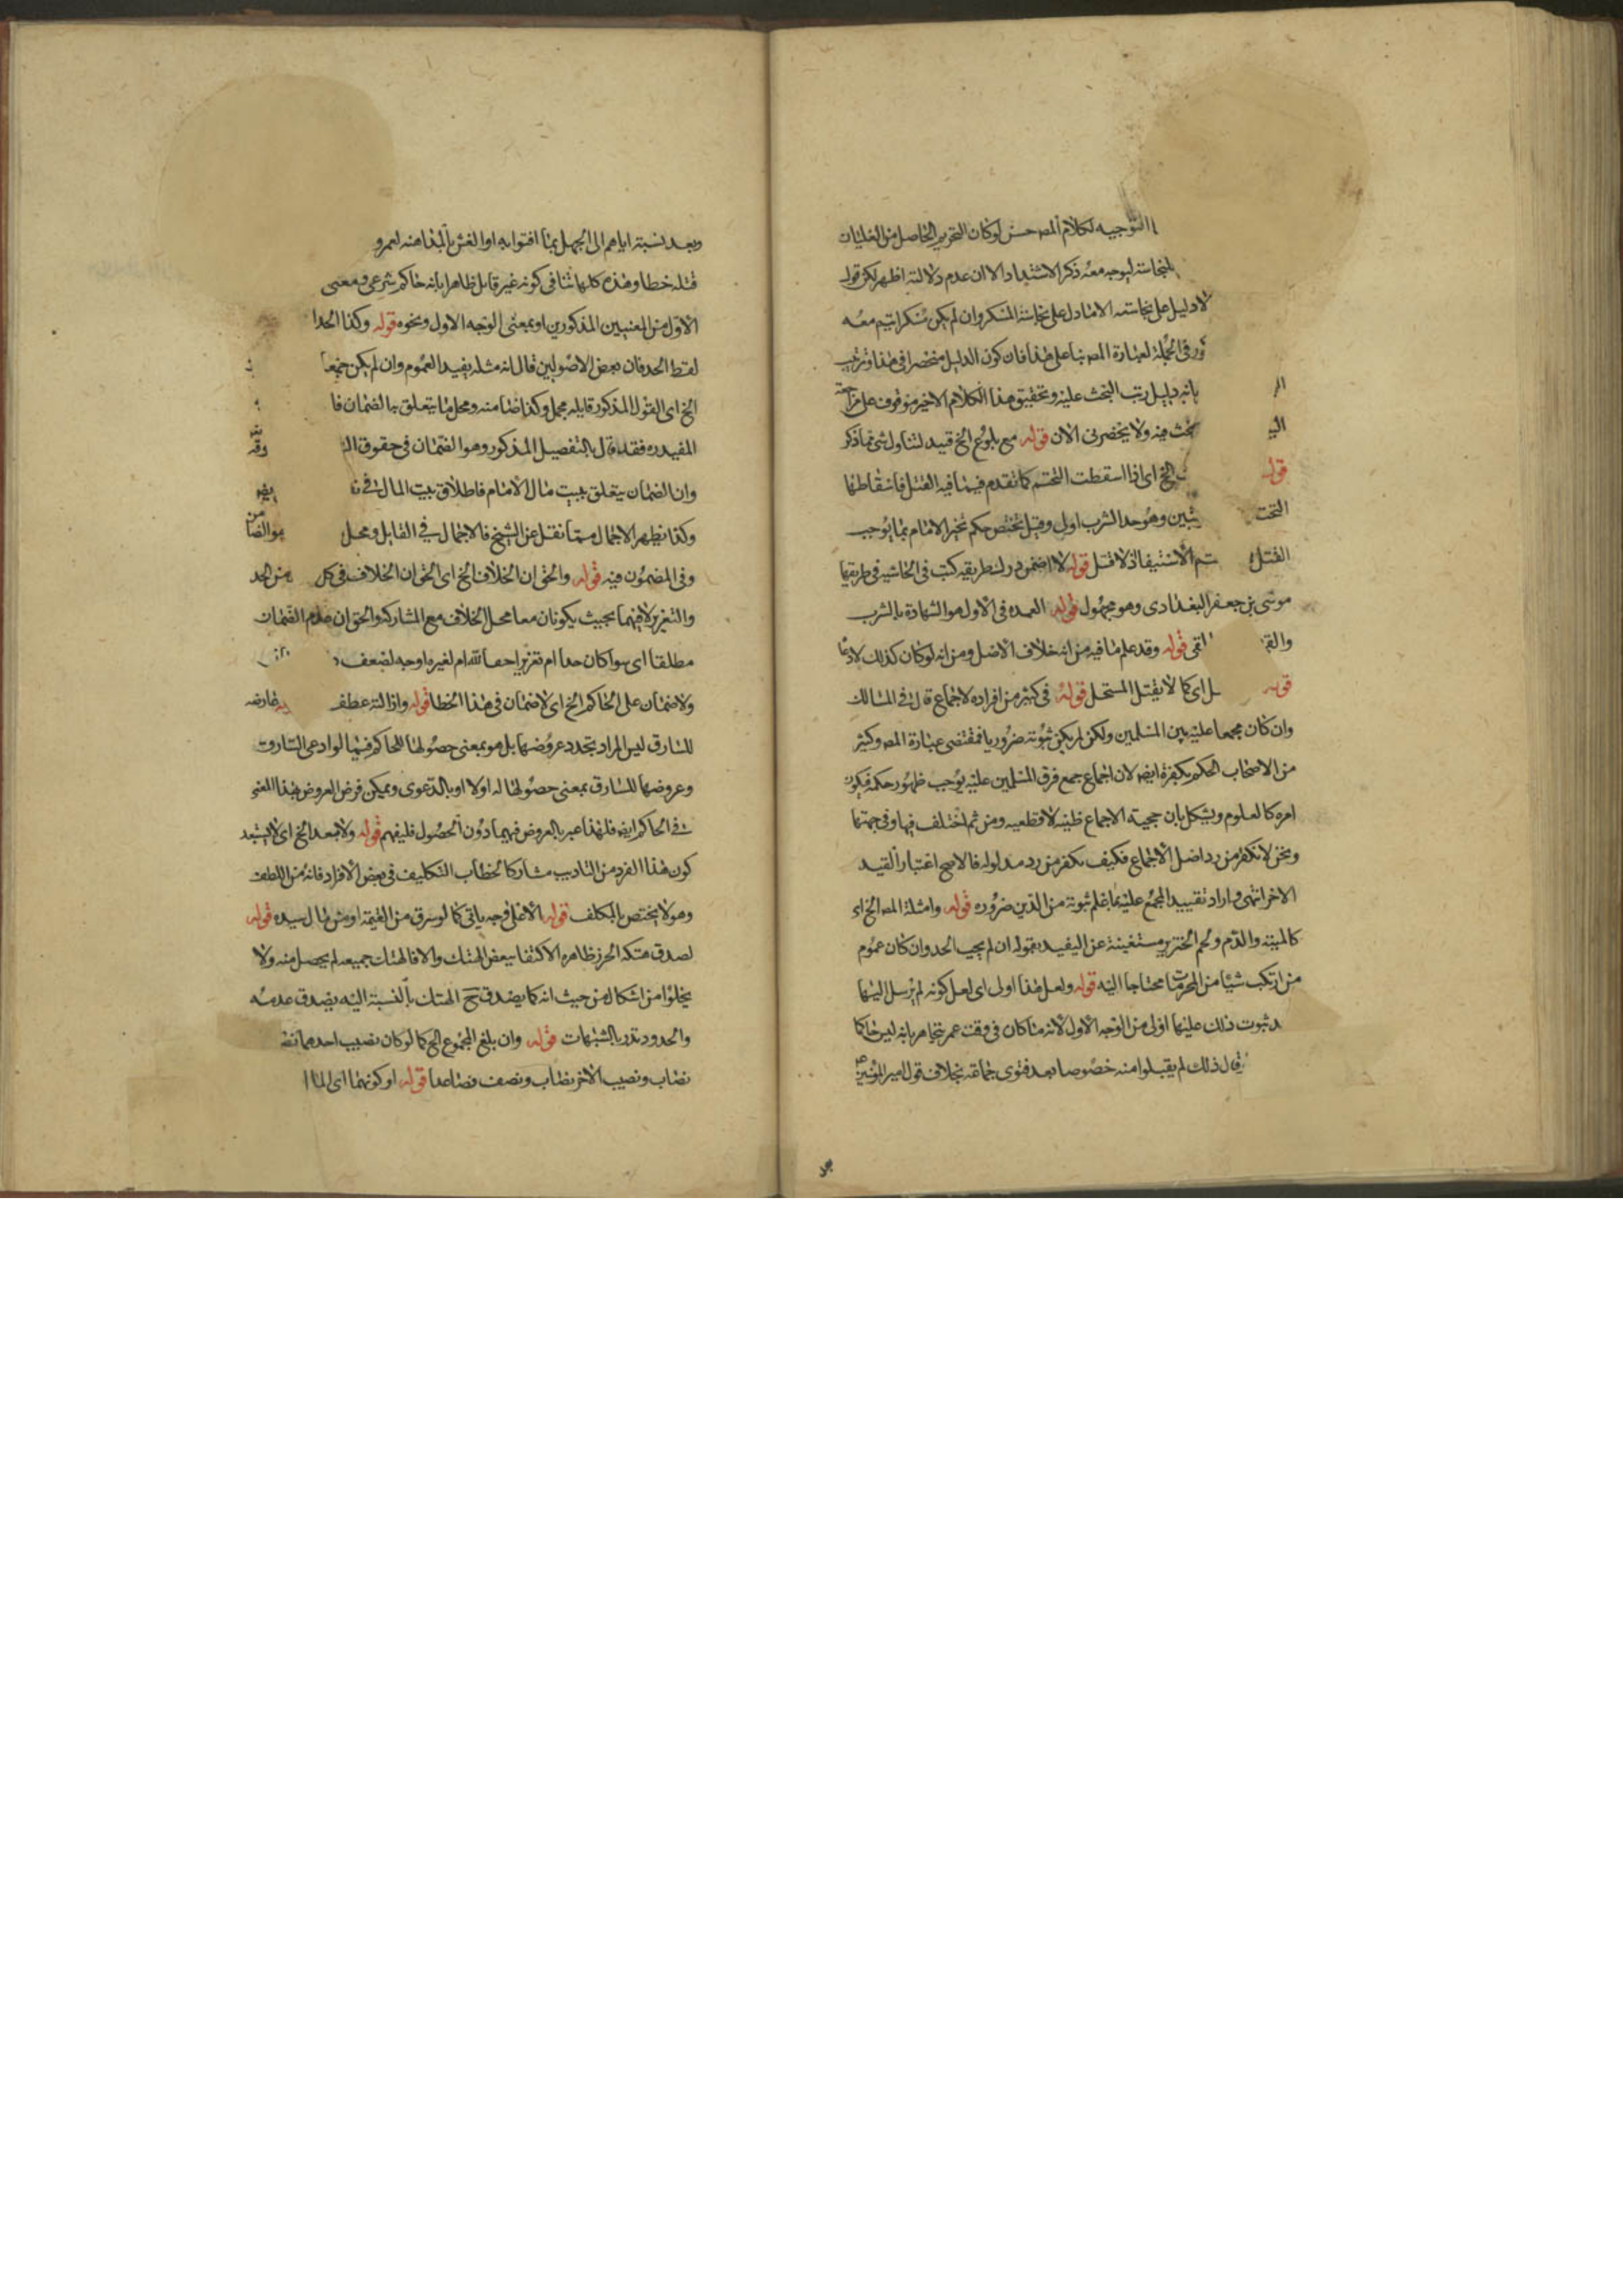 التوجيه لكلام المصـ حسن لوكان التحرير الحاصل من الغليان
لنجاسته ليوجه معه ذكر الاشتداد الا ان عدم دلالته اظهر لكن قوله
لا دليل على نجاسته الا ما دل على نجاسة المسكر وان لم يكن مسكرا يتم معه
فى الجملة لعبارة المصـ بنا على هذا فان كون الدليل منحصرا فى هذا وترتب
بانه دليل رتب البحث عليه وتحقيق هذا الكلام الاخير موقوف على مراجعته
بحث فيه ولا يحضرنى الان قوله مع بلوغ الخ قيد لتناول شى مما ذكر
قوله الخ اى اذا اسقطت التحتم كما تقدم فيما فيه القتل فاسقاطها
التحت وهو حد الشرب اولى وقيل تختص حكم تخير الامام بما يوجب
القتل تم الاستيفا اذ لا قتل قوله لا اضمن ورد لنطريقه كتب فى الحاشيه فى طريقها
موسى بن جعفر البغدادى وهو مجهول قوله العمده فى الاول هو الشهادة بالشرب
والقى قوله وقد علم ما فيه من انه خلاف الاصل ومن انه لو كان كذلك لادعا
قوله اى كما لا يقتل المستحل قوله فى كثير من افراده لاجماع قال فى المسالك
وان كان مجمعا عليه بين المسلمين ولكن لم يكن ثبوته ضروريا فمقتضى عبارة المصـ وكثير
من الاصحاب الحكم بكفره ايضـ لان اجماع جمع فرق المسلمين عليه يوجب ظهور حكمه فيكون
امره كالمعلوم ويشكل بان حجية الاجماع ظنيه لا قطعيه ومن ثم اختلف فيها وفى جهتها
ونحن لا نكفر من رد اصل الاجماع فكيف نكفر من رد مدلوله فالاصح اعتبار القيد
الاخر انتهى واراد تقييد المجمع عليه بما علم ثبوته من الدين ضروره قوله وامثلة المصـ الخ اى
كالميتة والدم ولحم الخنزير مستغنية عن التقييد بقوله ان لم يجب الحد وان كان عموم
من ارتكب شيئا من المحرمات محتاجا اليه قوله ولعل هذا اولى اى لعل كونه لم يرسل اليها
ثبوت ذلك عليها اولى من الوجه الاول لانه ما كان فى وقت عمر يتجاهر بانه ليس حاكما
قال ذلك لم يقبلوا منه خصوصا بعد فتوى جماعة بخلاف قول امير المؤمنين
وبعد نسبته اياهم الى الجهل بما افتوا به او الغش
قتله خطا وهذه كلها تنافى كونه غير قابل ظاهرا بانه حاكم شرعى ومعنى
الاول من المعنيين المذكورين او بمعنى الوجه الاول ونحوه قوله وكذا الحدا
لفظ الحد فان بعض الاصوليين قال انه مثله يفيد العموم وان لم يكن جمعا
الخ اى القول المذكور قايله مجمل وكذا ضامنه ومحل ما يتعلق به الضمان فا
المفيد ره فقد قال بالتفصيل المذكور وهو الضمان فى حقوق الـ
وان الضمان يتعلق ببيت مال الامام فاطلاق بيت المال فى
وكذا يظهر الاجمال مما نقل عن الشيخ فالاجمال فى القايل ومحل هو الضا
وفى المضمون فيه قوله والحق ان الخلاف الخ اى الحق ان الخلاف فى كل من الحد
والتعزير لا فيهما بحيث يكونان معا محل الخلاف مع المشاركة والحق ان عدم الضمان
مطلقا اى سوا كان حدا ام تعزيرا حقا لله ام لغيره اوجه لضعف
ولا ضمان على الحاكم الخ اى لا ضمان فى هذا الخطا قوله وازالته عطف
للسارق ليس المراد تجدد عروضها بل هو بمعنى حصولها للحاكم فيما لو ادعى السارق
وعروضها للسارق بمعنى حصولها له اولا او بالدعوى ويمكن فرض العروض بهذا المعنى
فى الحاكم ايضـ فلهذا عبر بالعروض فيهما دون الحصول فليفهم قوله ولا بعد الخ اى لا يستبعد
كون هذا الفرد من التاديب مشاركا لخطاب التكليف فى بعض الافراد فانه من اللطف
وهو لا يختص بالمكلف قوله الا على وجه ياتى كما لو سرق من الغنيمة او من مال سيده قوله
لصدق هتكه الحرز ظاهره الاكتفا ببعض الهتك والا فالهتك جميعه لم يحصل منه ولا
يخلوا من اشكال من حيث انه كما يصدق الهتك بالنسبة اليه يصدق عدمه
والحدود تدرا بالشبهات قوله وان بلغ المجموع الخ كما لو كان نصيب احدهما نصف
نصاب ونصيب الاخر نصاب ونصف فصاعدا قوله او كونهما اى الما